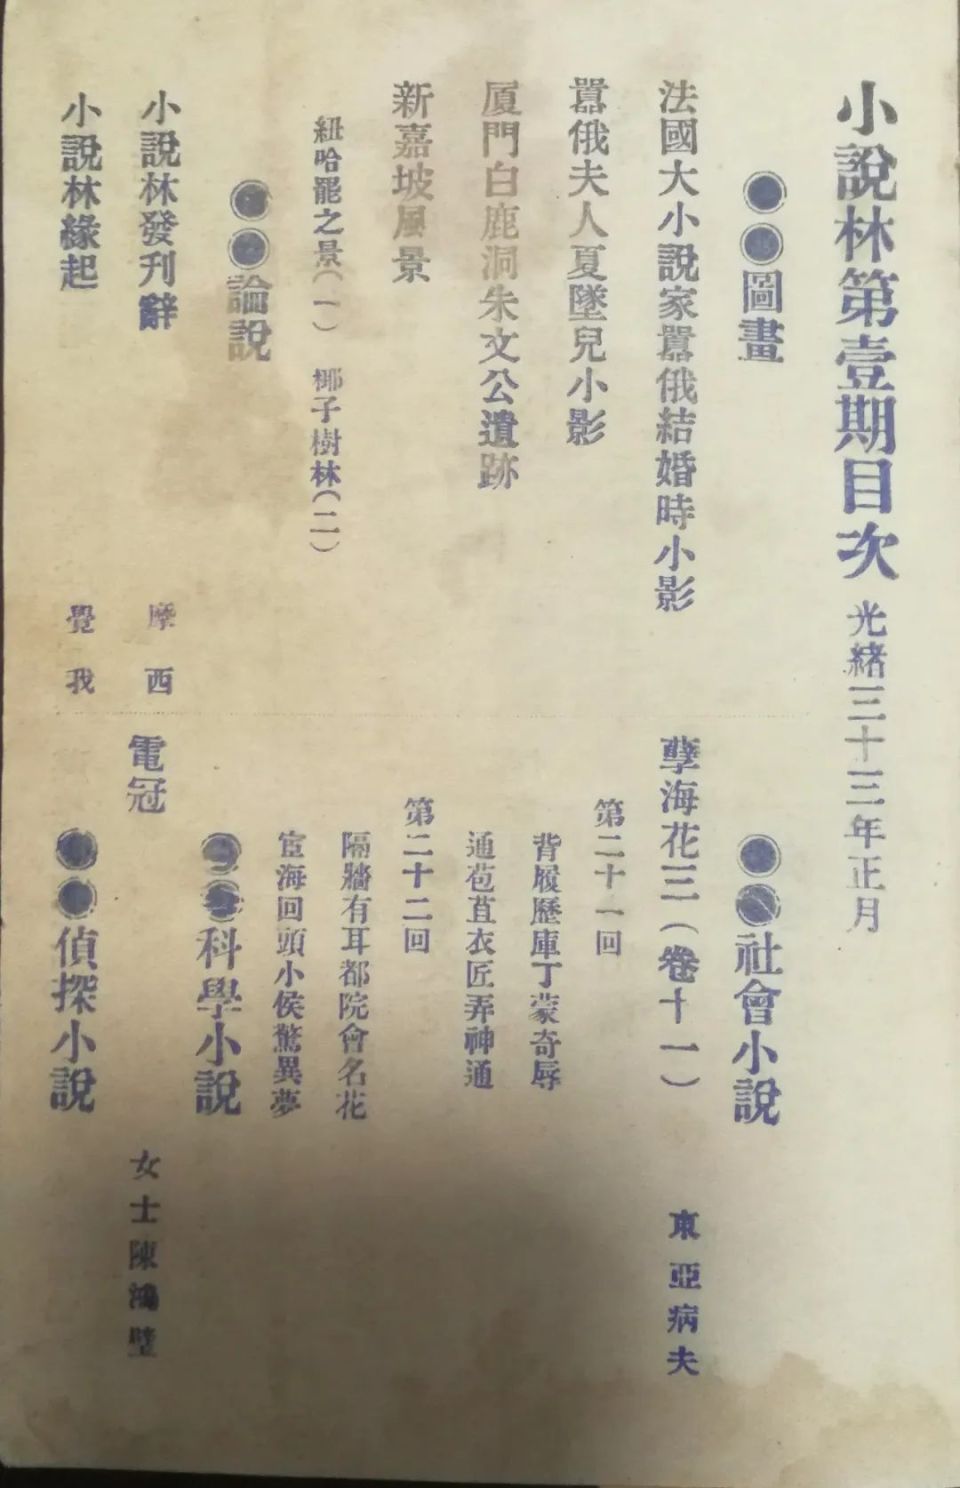 小說林第壹期目次 光緒三十三年正月
●●圖畫
法國大小說家囂俄結婚時小影
囂俄夫人夏墜兒小影
厦門白鹿洞朱文公遺跡
新嘉坡風景
紐哈罷之景(一) 椰子樹林(二)
●●論說
小說林發刊辭 摩西
小說林緣起 覺我
●●社會小說
孽海花三(卷十一) 東亞病夫
第二十一回
背履歷庫丁蒙奇辱
通苞苴衣匠弄神通
第二十二回
隔牆有耳都院會名花
宦海回頭小侯驚異夢
●●科學小說
電冠 女士陳鴻璧
●●偵探小說